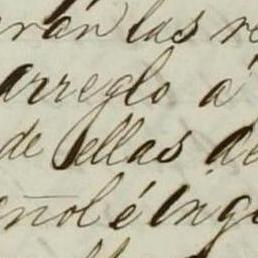 rán las re
arreglo á
de ellas de
añol é Ingl